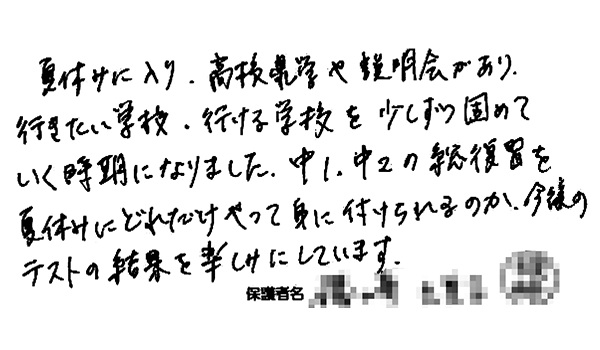 夏休みに入り、高校見学や説明会があり、
行きたい学校、行ける学校を少しずつ固めて
いく時期になりました。中1、中2の総復習を
夏休みにどれだけやって身に付けられるのか、今後の
テストの結果を楽しみにしています。
保護者名